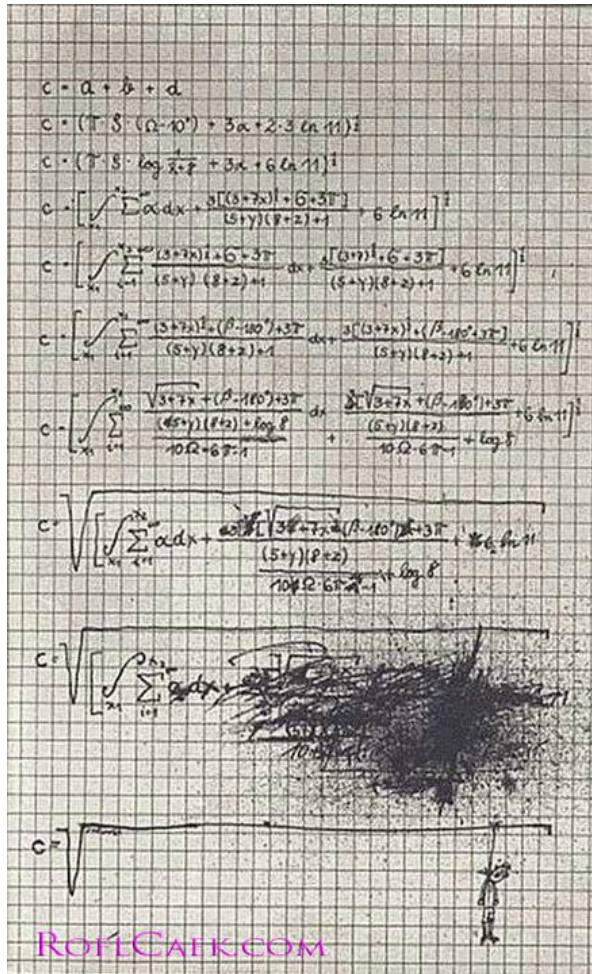 c = a + b + d
c = (π · S · (Ω·10°) + 3α + 2·3 ln 11)^½
c = (π · S · log 1/(2+8) + 3α + 6 ln 11)^½
c = [∫_{x₁}^{x₂} Σ^∞ α dx + 3[(3+7x)^½ + 6 + 3π]/((5+y)(8+z)+1) + 6 ln 11]^½
c = [∫_{x₁}^{x₂} Σ_{i=1}^{∞} ((3+7x)^½ + 6 + 3π)/((5+y)(8+z)+1) dx + 3[(3+7)^½ + 6 + 3π]/((5+y)(8+z)+1) + 6 ln 11]^½
c = [∫_{x₁}^{x₂} Σ_{i=1}^{∞} ((3+7x)^½ + (β-180°) + 3π)/((5+y)(8+z)+1) dx + 3[(3+7x)^½ + (β-180°+3π]/((5+y)(8+z)+1) + 6 ln 11]^½
c = [∫_{x₁}^{x₂} Σ_{i=1}^{∞} (√(3+7x) + (β-180°) + 3π)/(((5+y)(8+z)+log 8)/(10Ω·6π-1)) dx + 3[√(3+7x) + (β-180°) + 3π/((5+y)(8+z)/(10Ω·6π-1) + log 8) + 6 ln 11]^½
c = √[∫_{x₁}^{x₂} Σ_{i=1}^{∞} α dx + [√(3+7x) (β-180°) + 3π/((5+y)(8+z)/(10Ω·6π-1) + log 8) + 6 ln 11
c = √[∫_{x₁}^{x₂} Σ_{i=1}^{∞} dx +
10
c = √
ROFLCAFK.COM